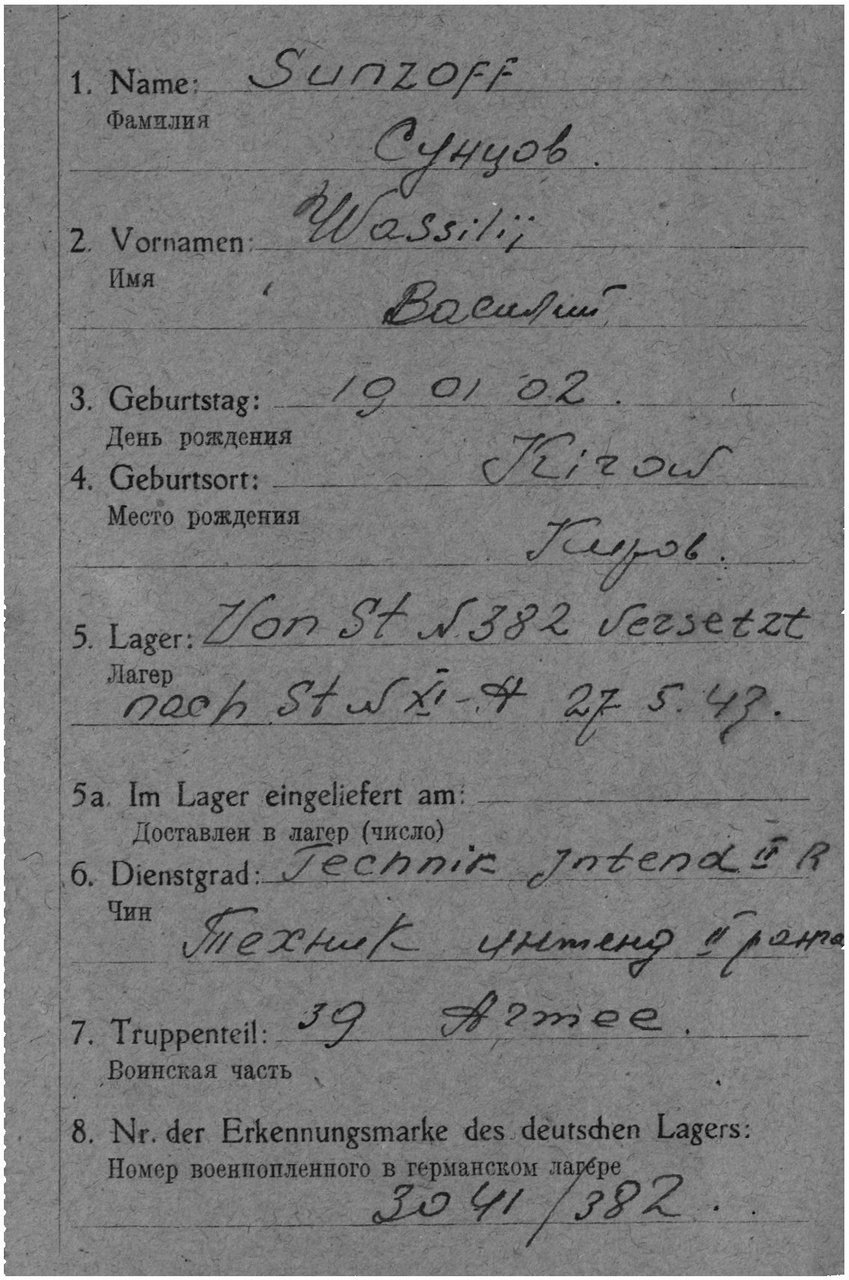 1. Name: Sunzoff
Фамилия
Сунцов.
2. Vornamen: Wassilij
Имя
Василий
3. Geburtstag: 19 01 02.
День рождения
4. Geburtsort: Kirow
Место рождения
Киров.
5. Lager: Von St N 382 versetzt
Лагер
nach St N XI-A 27 5. 43.
5a. Im Lager eingeliefert am:
Доставлен в лагер (число)
6. Dienstgrad: Technik Intend II R
Чин
Техник интенд II ранга
7. Truppenteil: 39 Armee.
Воинская часть
8. Nr. der Erkennungsmarke des deutschen Lagers:
Номер военнопленного в германском лагере
3041/382.